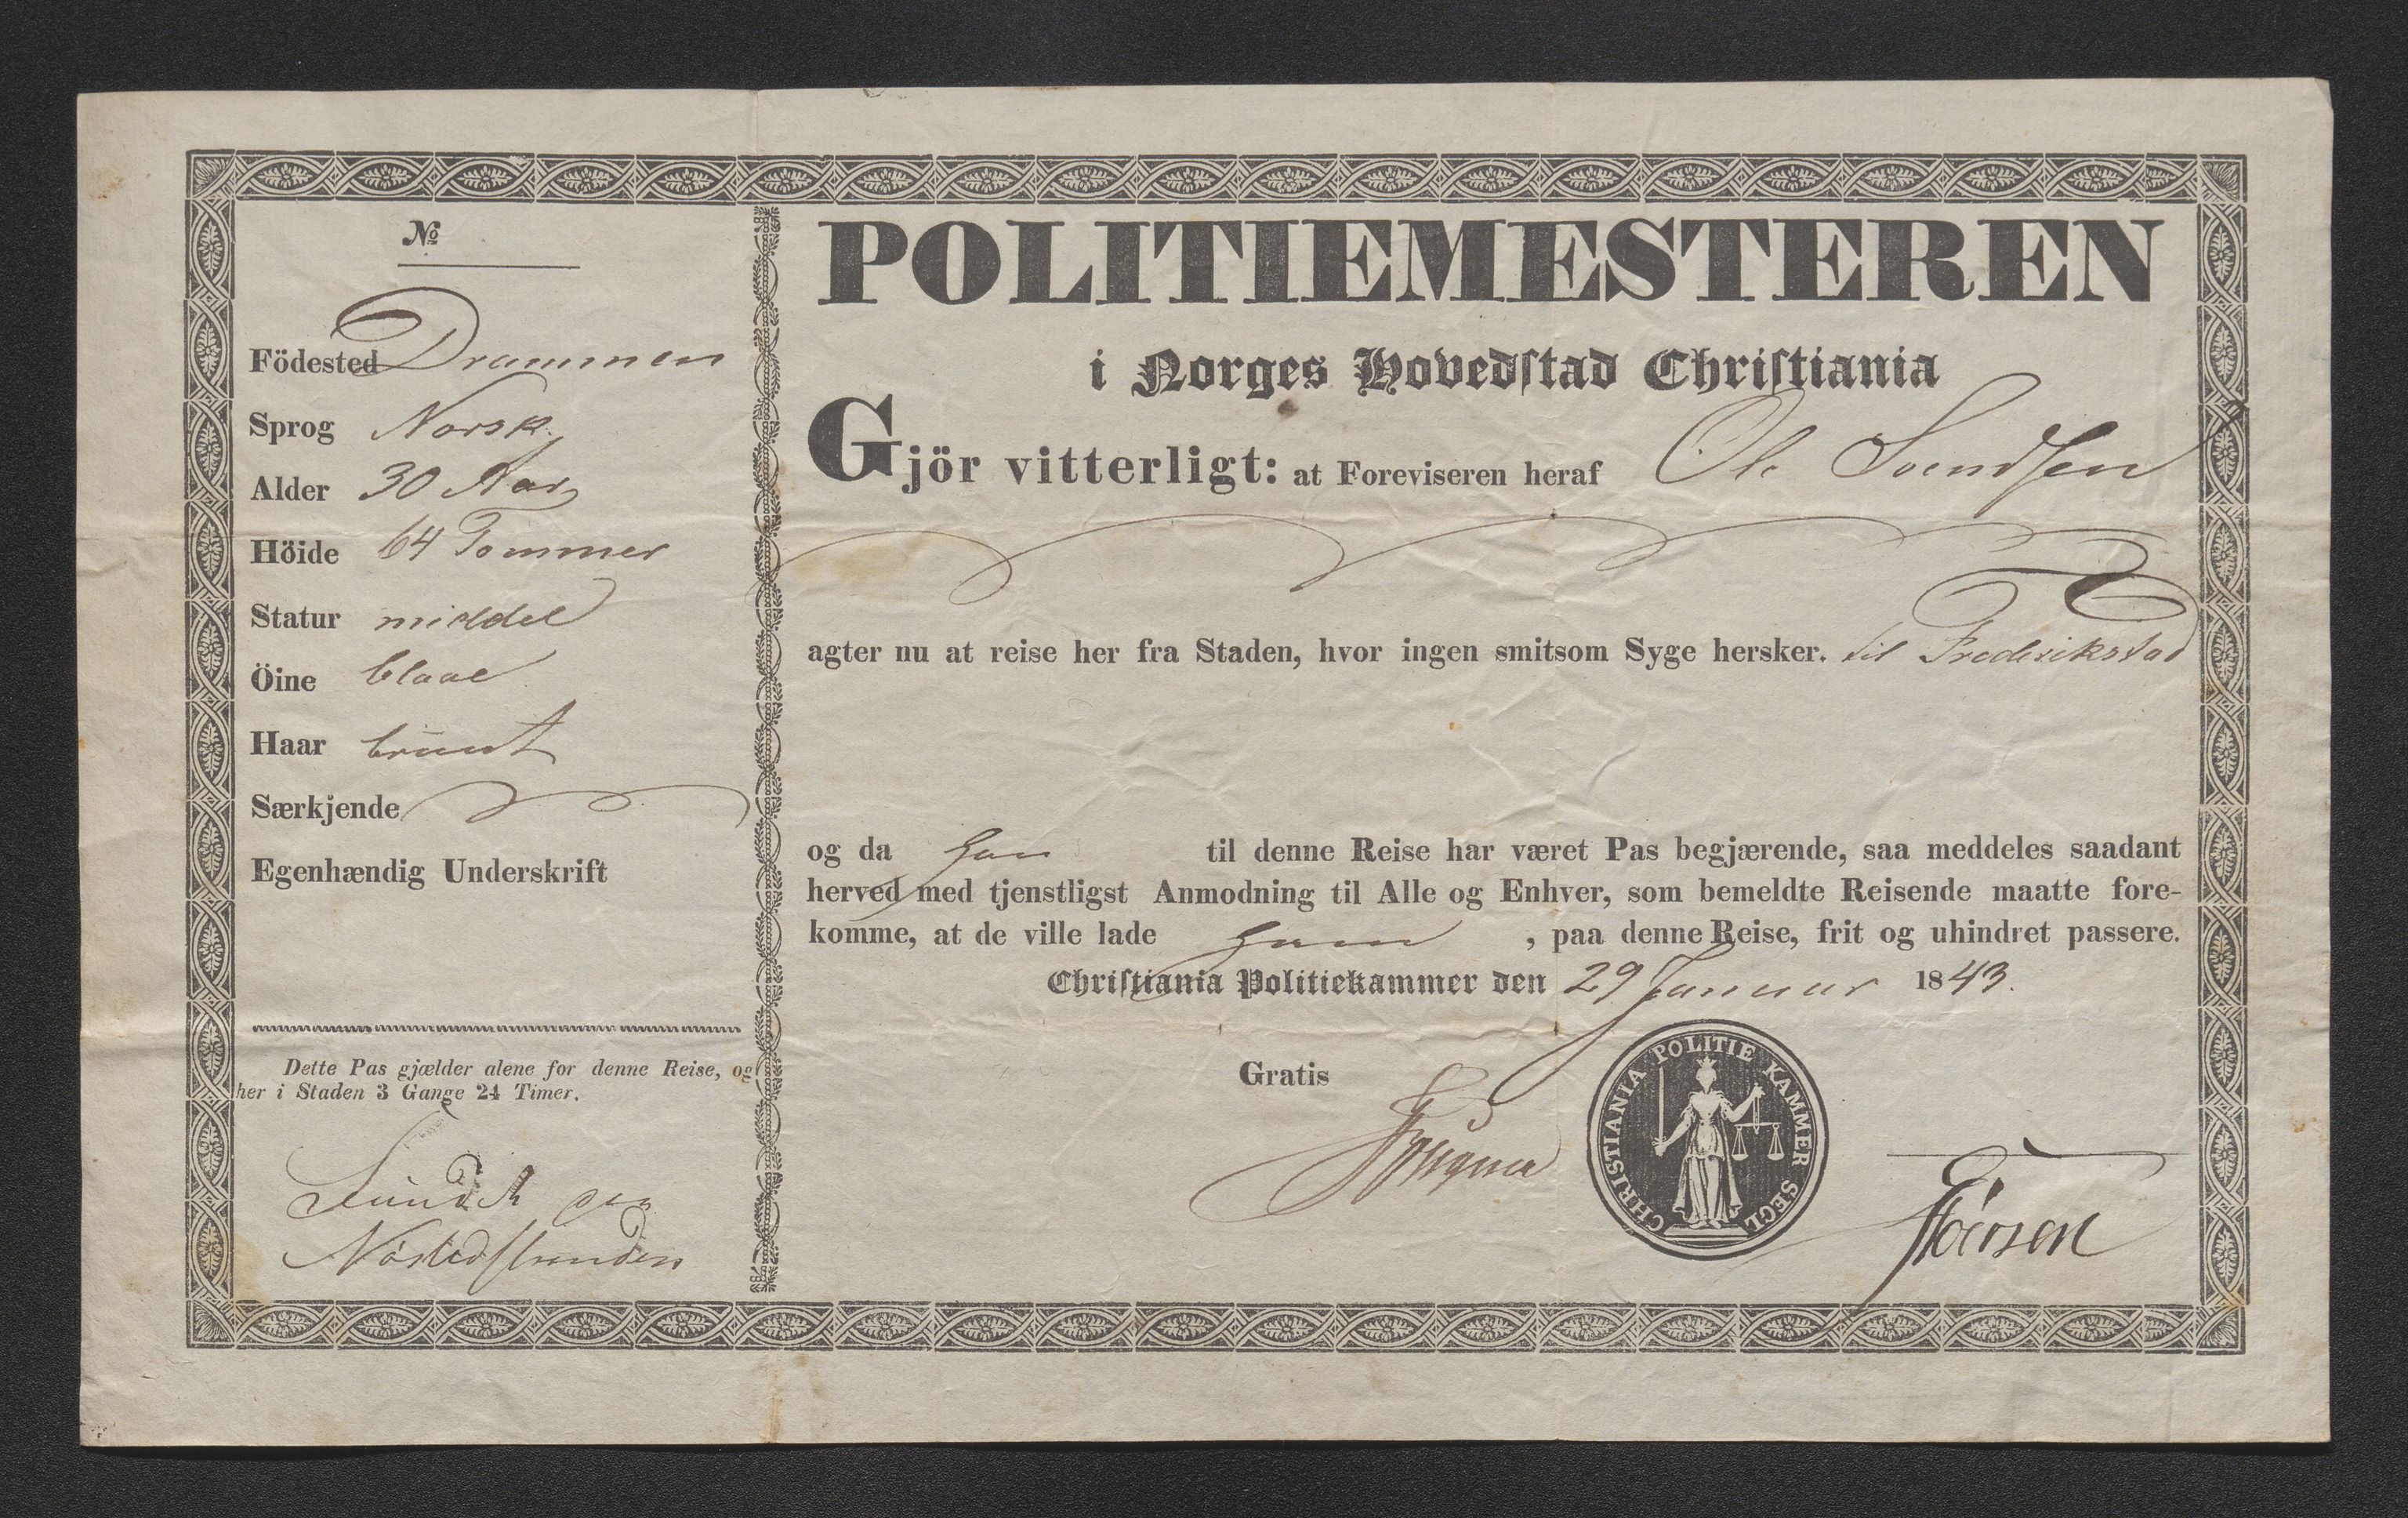 No
Födested Drammen
Sprog Norsk.
Alder 30 Aar
Höide 64 Tommer
Statur middel
Öine blaae
Haar bruunt
Særkjende
Egenhændig Underskrift
Dette Pas gjælder alene for denne Reise, og
her i Staden 3 Gange 24 Timer.
paa
POLITIEMESTEREN
i Norges Hovedstad Christiania
Gjör vitterligt: at Foreviseren heraf Ole Svendsen
agter nu at reise her fra Staden, hvor ingen smitsom Syge hersker. til Frederikstad
og da han til denne Reise har været Pas begjærende, saa meddeles saadant
herved med tjenstligst Anmodning til Alle og Enhver, som bemeldte Reisende maatte fore-
komme, at de ville lade ham , paa denne Reise, frit og uhindret passere.
Christiania Politiekammer den 29 Januar 1843.
Gratis
CHRISTIANIA POLITIE KAMMER SEGL